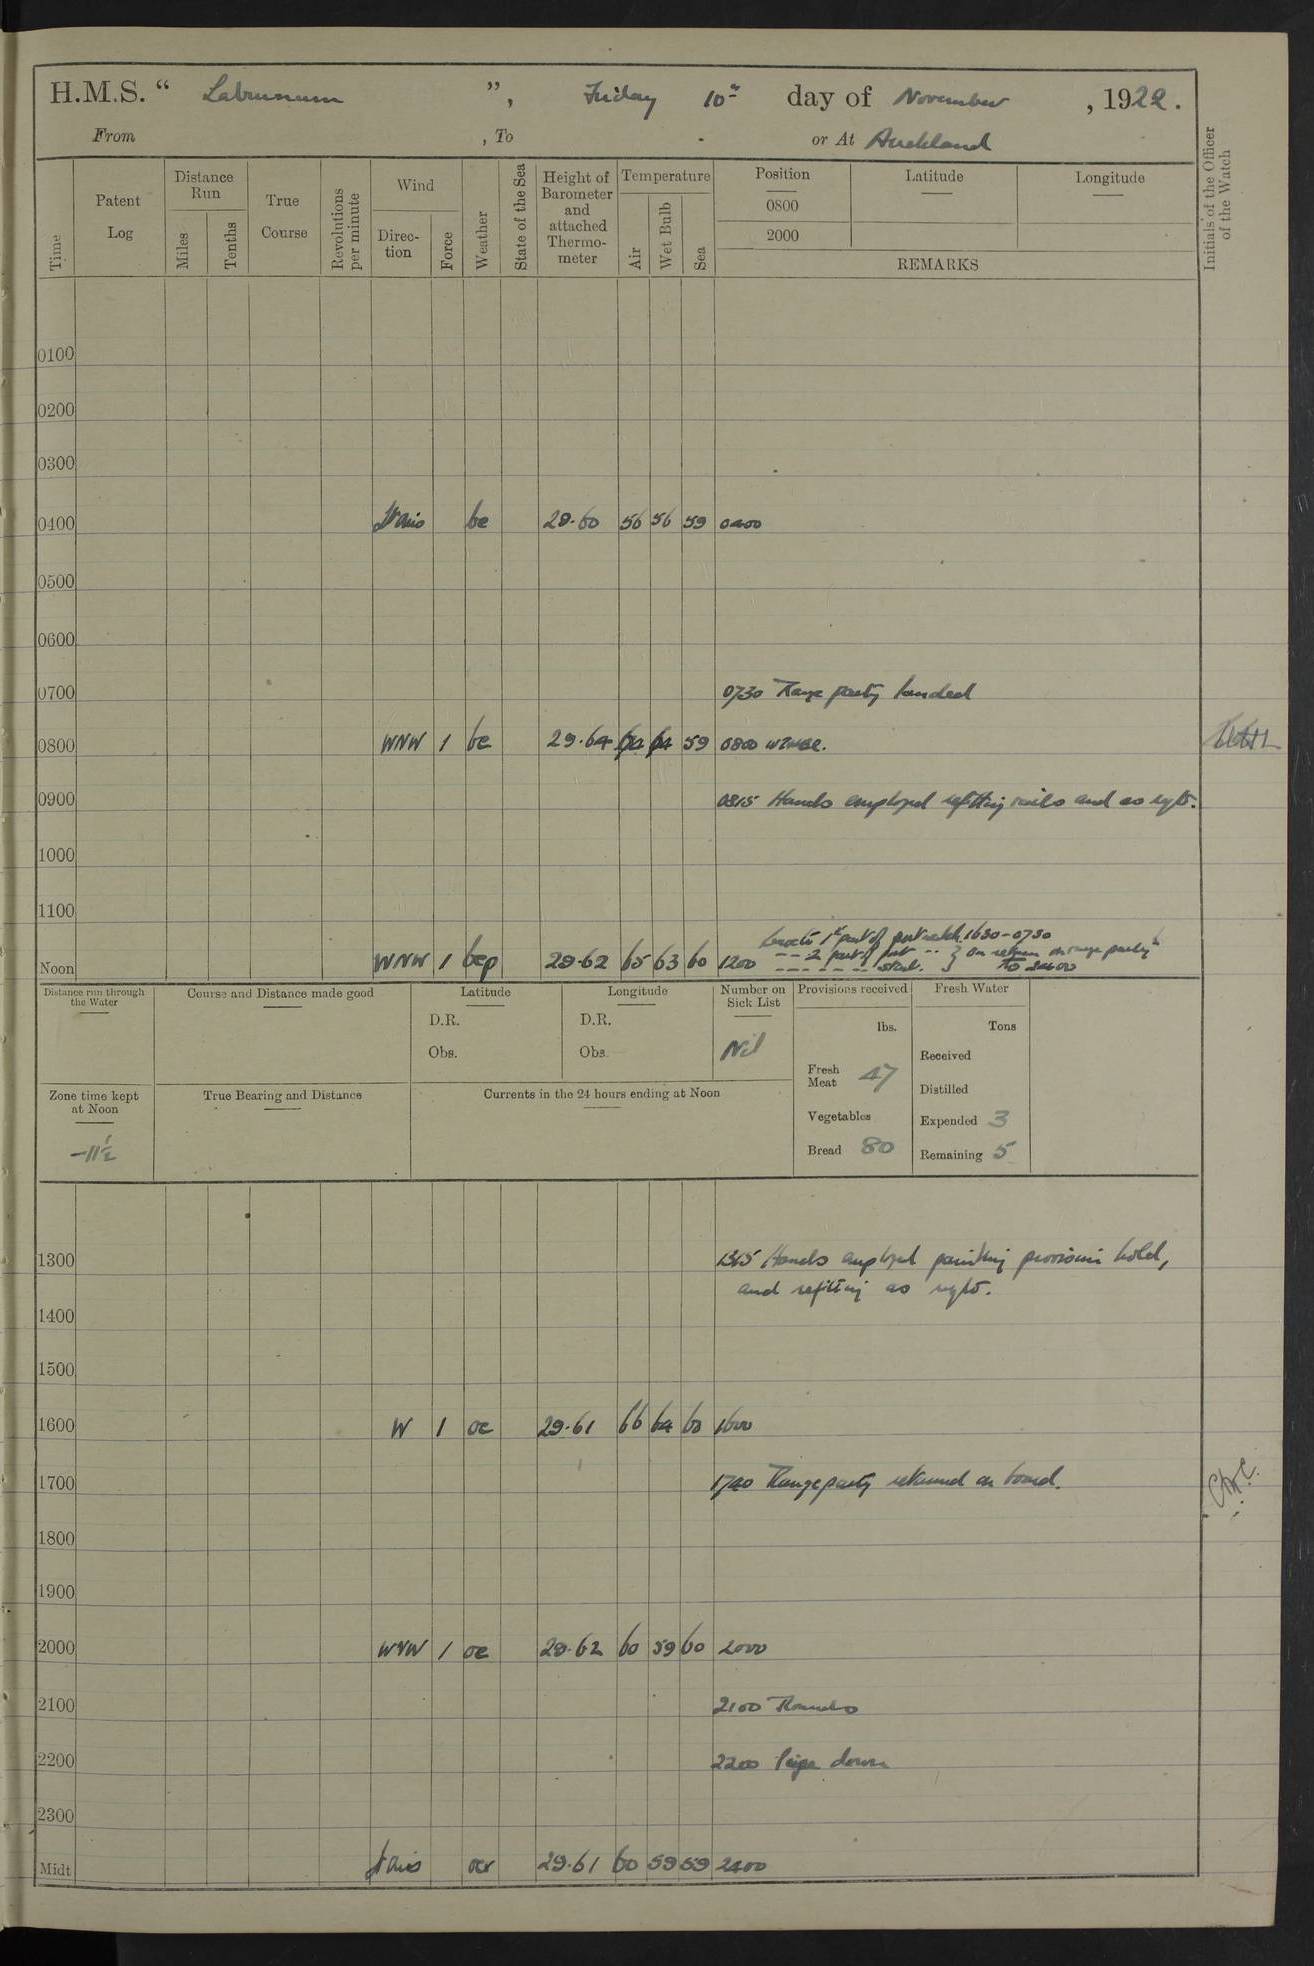 H.M.S. “ Laburnum ”, Friday 10th day of November, 1922.
From , To or At Auckland
Time
Patent Log
Distance Run
Miles
Tenths
True Course
Revolutions per minute
Wind
Direc-tion
Force
Weather
State of the Sea
Height of Barometer and attached Thermo-meter
Temperature
Air
Wet Bulb
Sea
Position
0800
2000
Latitude
Longitude
REMARKS
Initials of the Officer of the Watch
0100
0200
0300
0400 bc 29.60 56 56 59 0400
0500
0600
0700 0730 Range party landed
0800 WNW 1 bc 29.64 59 0800
0900 0815 Hands employed refitting and as reqts.
1000
1100
1st part of port watch 1630-0730
2 part of port on return on range party
Noon WNW 1 bcp 29.62 65 63 60 1200
Distance run through the Water
Course and Distance made good
Latitude
D.R.
Obs.
Longitude
D.R.
Obs.
Number on Sick List
Nil
Provisions received
lbs.
Fresh Meat 47
Vegetables
Bread 80
Fresh Water
Tons
Received
Distilled
Expended 3
Remaining 5
Zone time kept at Noon
-11½
True Bearing and Distance
Currents in the 24 hours ending at Noon
1300 1315 Hands employed painting provision hold,
and refitting as reqts.
1400
1500
1600 W 1 oc 29.61 66 64 60 1600
1700 1740 Range party returned on board.
1800
1900
2000 WNW 1 oc 29.62 60 59 60 2000
2100 2100 Rounds
2200 2200 Pipe down
2300
Midt 29.61 60 59 59 2400